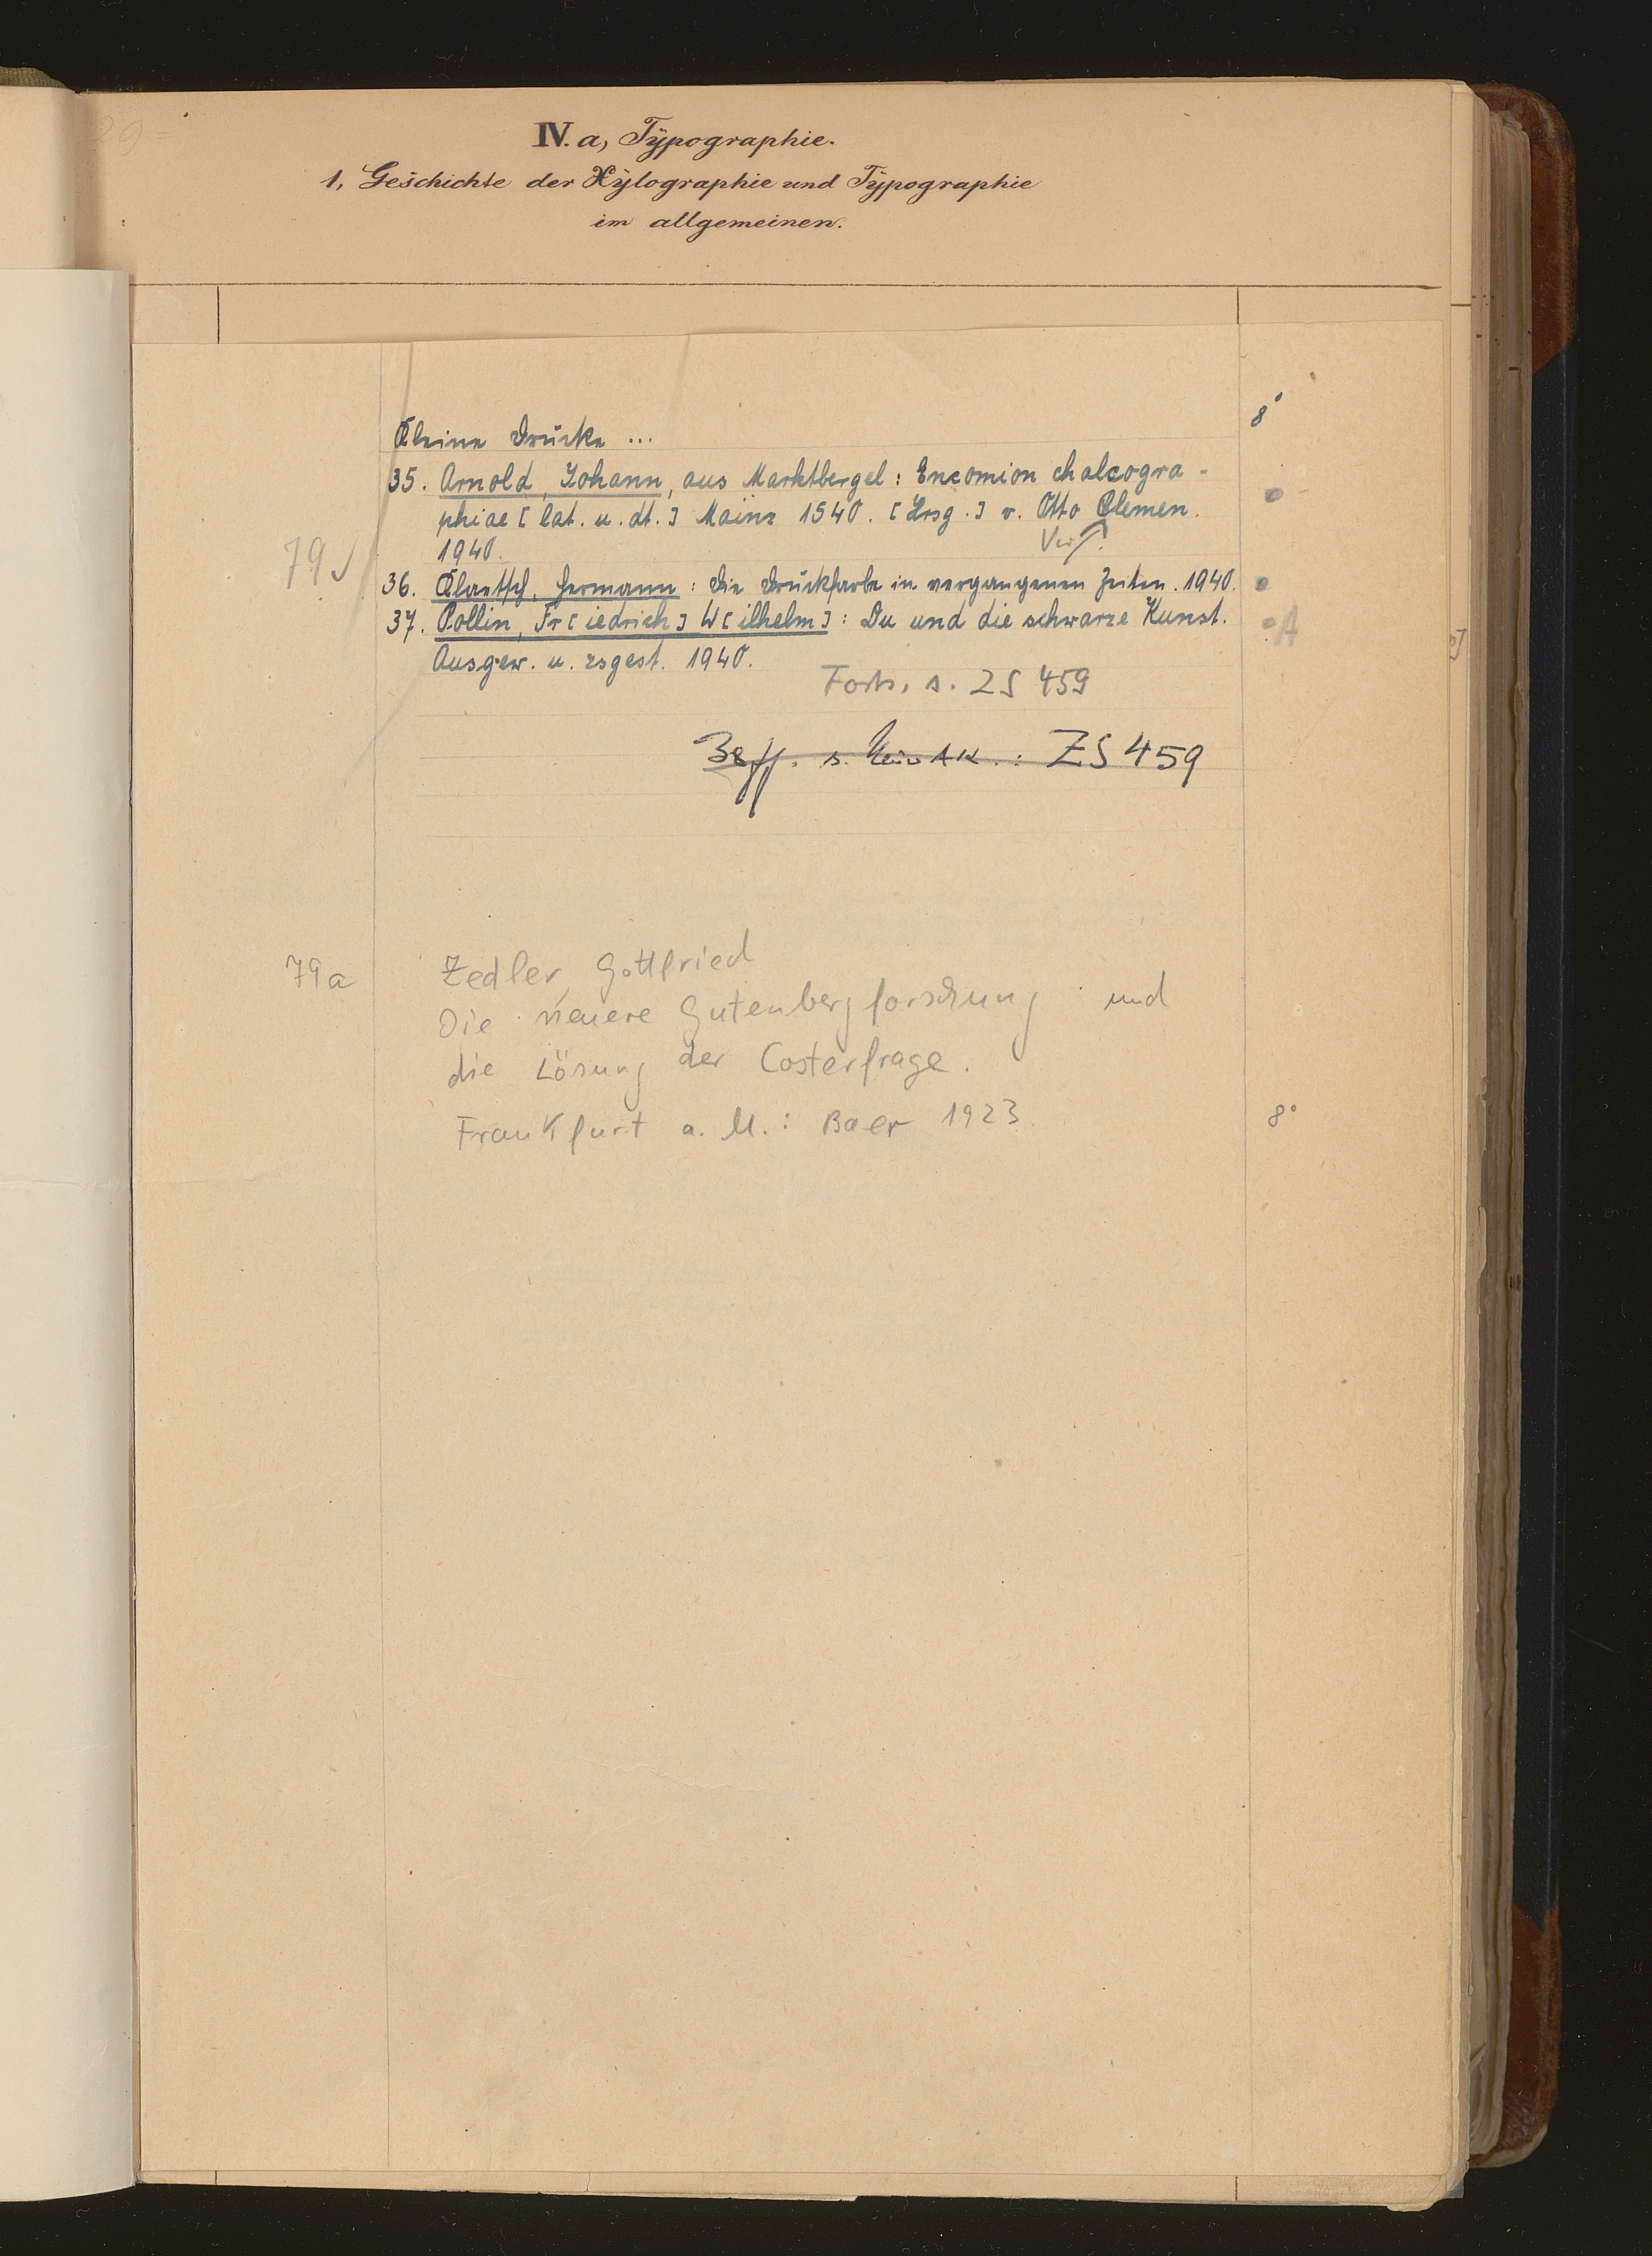 IV. a, Typographie.
1, Geschichte der Xylographie und Typographie
im allgemeinen.
8°
Kleine Drucke ...
35. Arnold, Johann, aus Marktbergel: Encomion chalcogra-
phiae [lat. u. dt.] Mainz 1540. [Hrsg.] v. Otto Clemen.
1940.
79
36. Gla&#8203;etsch, Hermann: Die Druckfarbe in vergangenen Zeiten. 1940.
37. Pollin, Fr[iedrich] W[ilhelm]: Du und die schwarze Kunst.
A
Ausgew. u. zsgest. 1940.
Forts. s. ZS 459
38 ff. s. : ZS 459
79a
Zedler, Gottfried
Die neuere Gutenbergforschung und
die Lösung der Costerfrage.
Frankfurt a. M.: Baer 1923.
8°